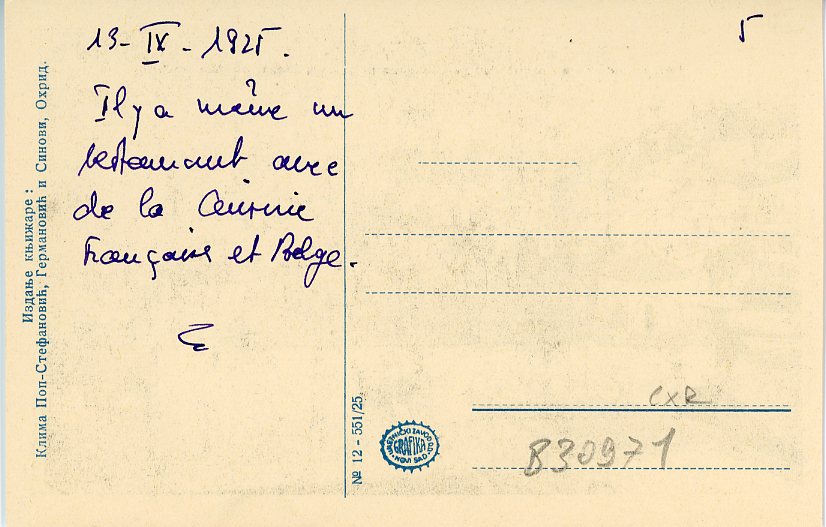 13-IX-1925.
5
Il y a même un
restaurant avec
de la Cuisine
Française et Belge.
Издање књижаре:
Клима Поп-Стефановић, Германовић и Синови, Охрид.
№ 12 - 551/25.
UMETNIČKI ZAVOD D.D.
GRAFIKA
NOVI SAD
CXR
830971